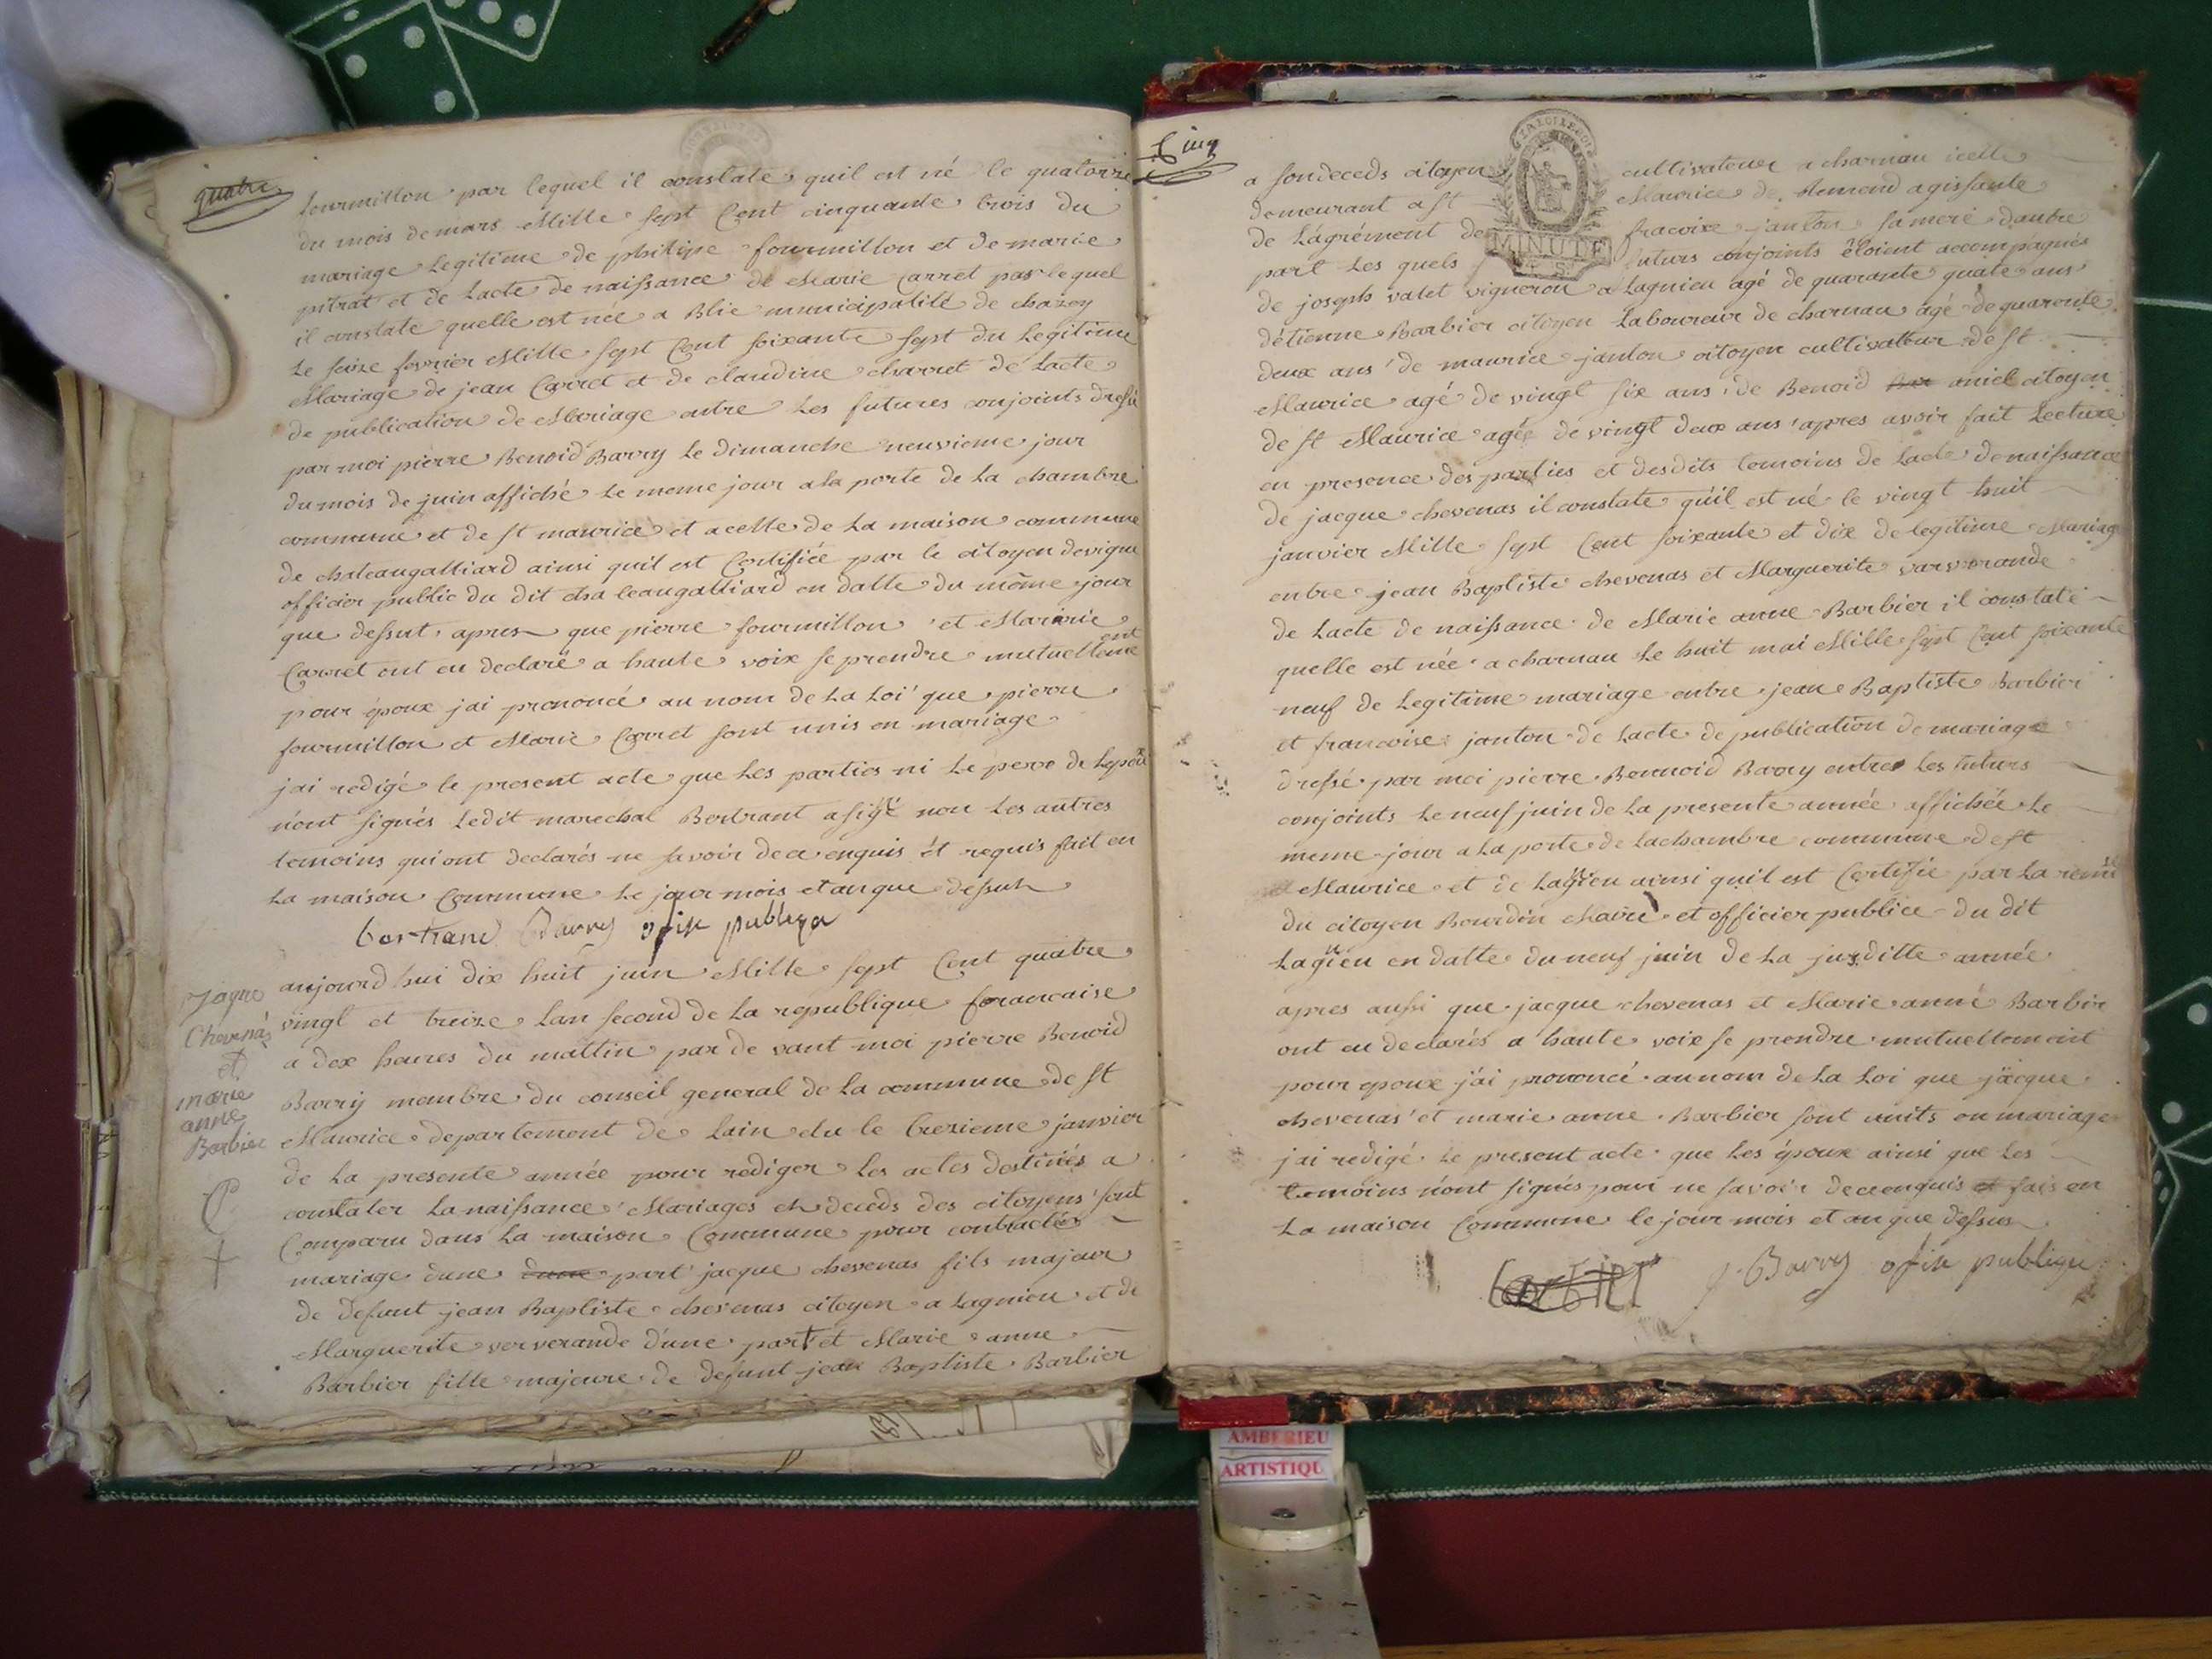 quatre
fourmillon par lequel il constate quil est né le quatorze
du mois de mars Mille sept Cent cinquante trois du
mariage Legitime de philipe fourmillon et de marie
pitrat et de Lacte de naissance de Marie Carret par lequel
il constate quelle est née a Blie municipalité de chazey
Le seize fevrier Mille sept Cent soixante sept du Legitime
Mariage de jean Carret et de claudine charret de Lacte
de publication de Mariage entre les futures conjoints dressé
par moi pierre Benoid Barry Le dimanche neuvieme jour
du mois de juin affiché le meme jour a la porte de la chambre
commune et de st maurice et a celle de la maison commune
de chateaugalliard ainsi quil est Certifiée par le citoyen devigne
officier public du dit chateaugalliard en datte du même jour
que dessut apres que pierre fourmillon et Mararie
Carret ont eu declaré a haute voix se prendre mutuellement
pour époux jai prononcé au nom de La Loi que pierre
fourmillon et Marie Carret sont unis en mariage
jai redigé le present acte que les parties ni Le pere de Lepoux
n'ont signés Ledit marechal Bertrant a signé non Les autres
temoins qui ont declarés ne savoir de ce enquis et requis fait en
La maison Commune Le jour mois et an que dessuh
bertrand Barry ofise publique
Jaque
Chevenas
et
marie
anne
Barbier
aujourdhui dix huit juin Mille sept Cent quatre
vingt et treize Lan second de La republique francaise
a dex heures du mattin par de vant moi pierre Benoid
Barry membre du conseil general de La commune de St
Maurice departement de Lain elu le tresieme janvier
de La presente année pour rediger les actes destinés a
constater La naissance Mariages et deceds des citoyens sont
Comparu dans La maison Commune pour contracter
mariage dune dune part jacque chevenas fils majeur
de defunt jean Baptiste chevenas citoyen a Lagnieu et de
Marguerite ververande d'une part et Marie anne
Barbier fille majeure de defunt jean Baptiste Barbier
Cinq
a son deceds citoyen cultivateur a charnau icelle
demeurant a st Maurice de Remend agissante
de L'agrément de fracoise janton sa mere dautre
part Les quels futurs conjoints étoient accompagnés
de joseph valet vigneron a Lagnieu agé de quarante quatre ans
détienne Barbier citoyen Laboureur de charnau agé de quarente
deux ans de maurice janton citoyen cultivateur de st
Maurice agé de vingt six ans de Benoid aniel citoyen
de st Maurice agée de vingt deux ans apres avoir fait Lecture
en presence des parties et desdits temoins de Lacte de naissance
de jacque chevenas il constate qu'il est né le vingt huit
janvier Mille sept Cent soixante et dix de legitime Mariage
entre jean Baptiste chevenas et Marguerite varvorande
de Lacte de naissance de Marie anne Barbier il constate
quelle est née a charnau Le huit mai Mille sept Cent soixante
neuf de Legitime mariage entre jean Baptiste Barbier
et francoise janton de Lacte de publication de mariage
dressé par moi pierre Bennoid Barry entre les futurs
conjoints Le neuf juin de La presente année affichée Le
meme jour a La porte de la chambre commune de st
Maurice et de Lagnieu ainsi quil est Certifie par La remise
du citoyen Bourdin Maire et officier publice du dit
Lagnieu en datte du neuf juin de La jusditte année
apres aussi que jacque chevenas et Marie anne Barbier
ont eu declarés a haute voix se prendre mutuellement
pour epoux j'ai prononcé au nom de La Loi que jacque
chevenas et marie anne Barbier sont units en mariage
jai redigé Le present acte que Les époux ainsi que Les
temoins n'ont signés pour ne savoir de ce enquis et fais en
La maison Commune le jour mois et an que dessus
barbier Barry ofise publique
MINUTE
AMBERIEU
ARTISTIQU